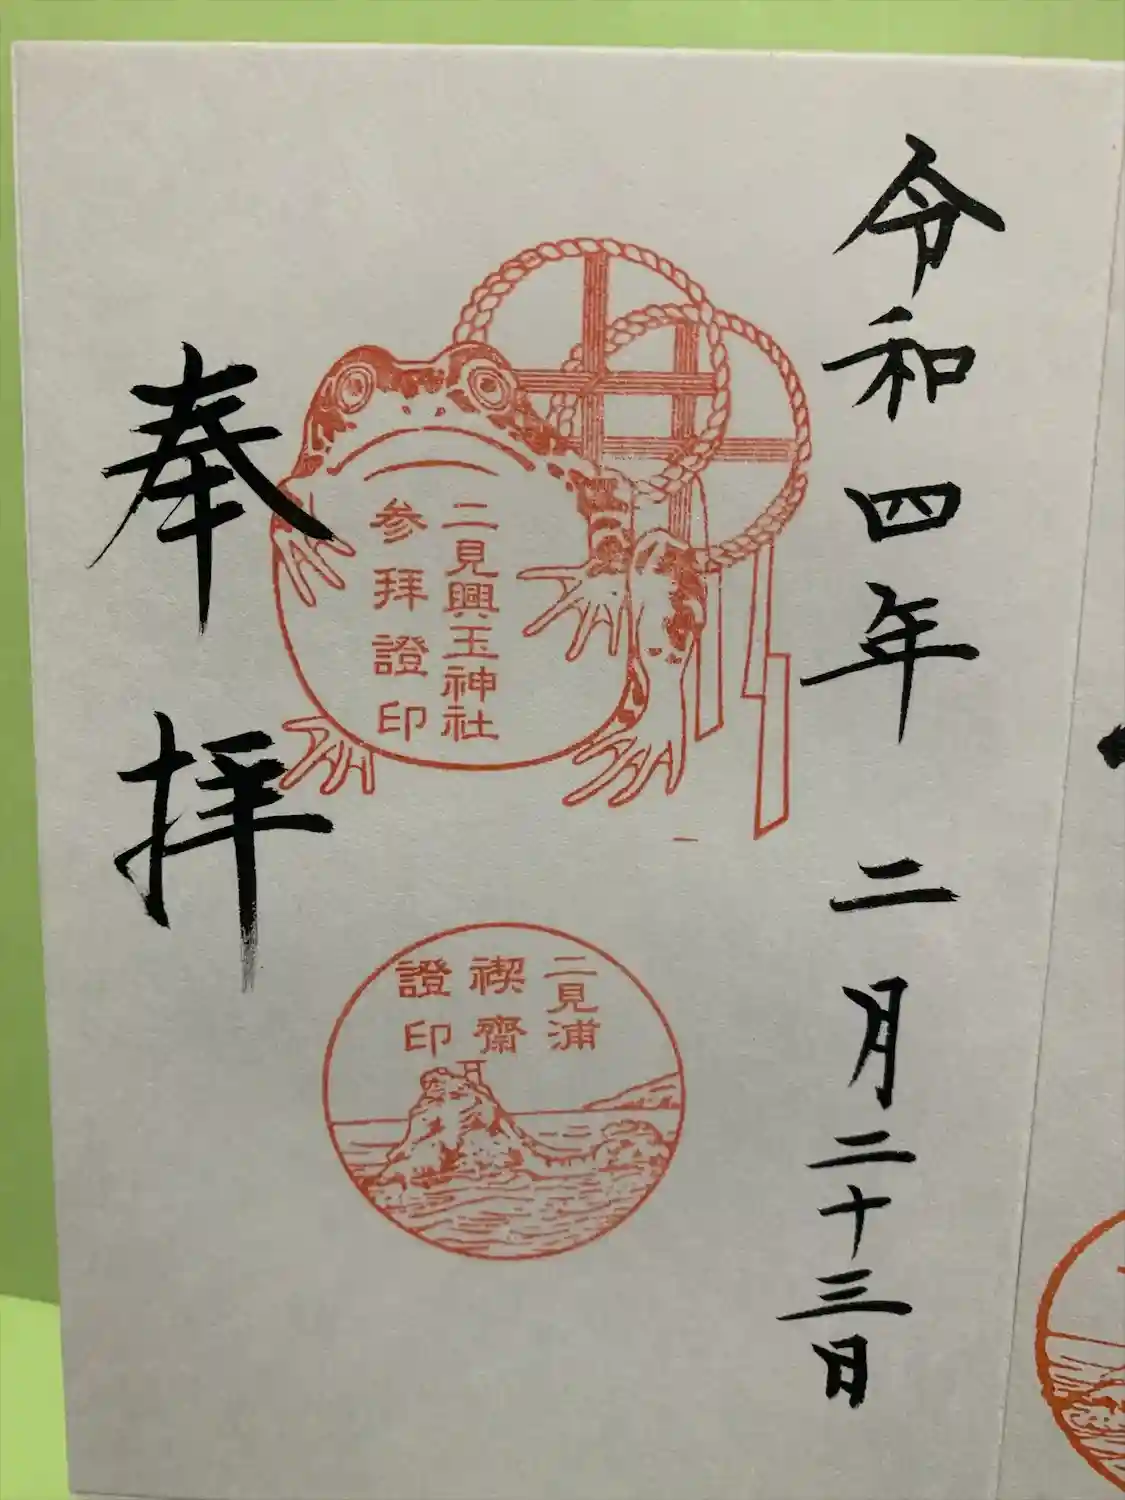 令和四年 二月二十三日
二見興玉神社
参拝證印
二見浦
禊齋
證印
奉拝